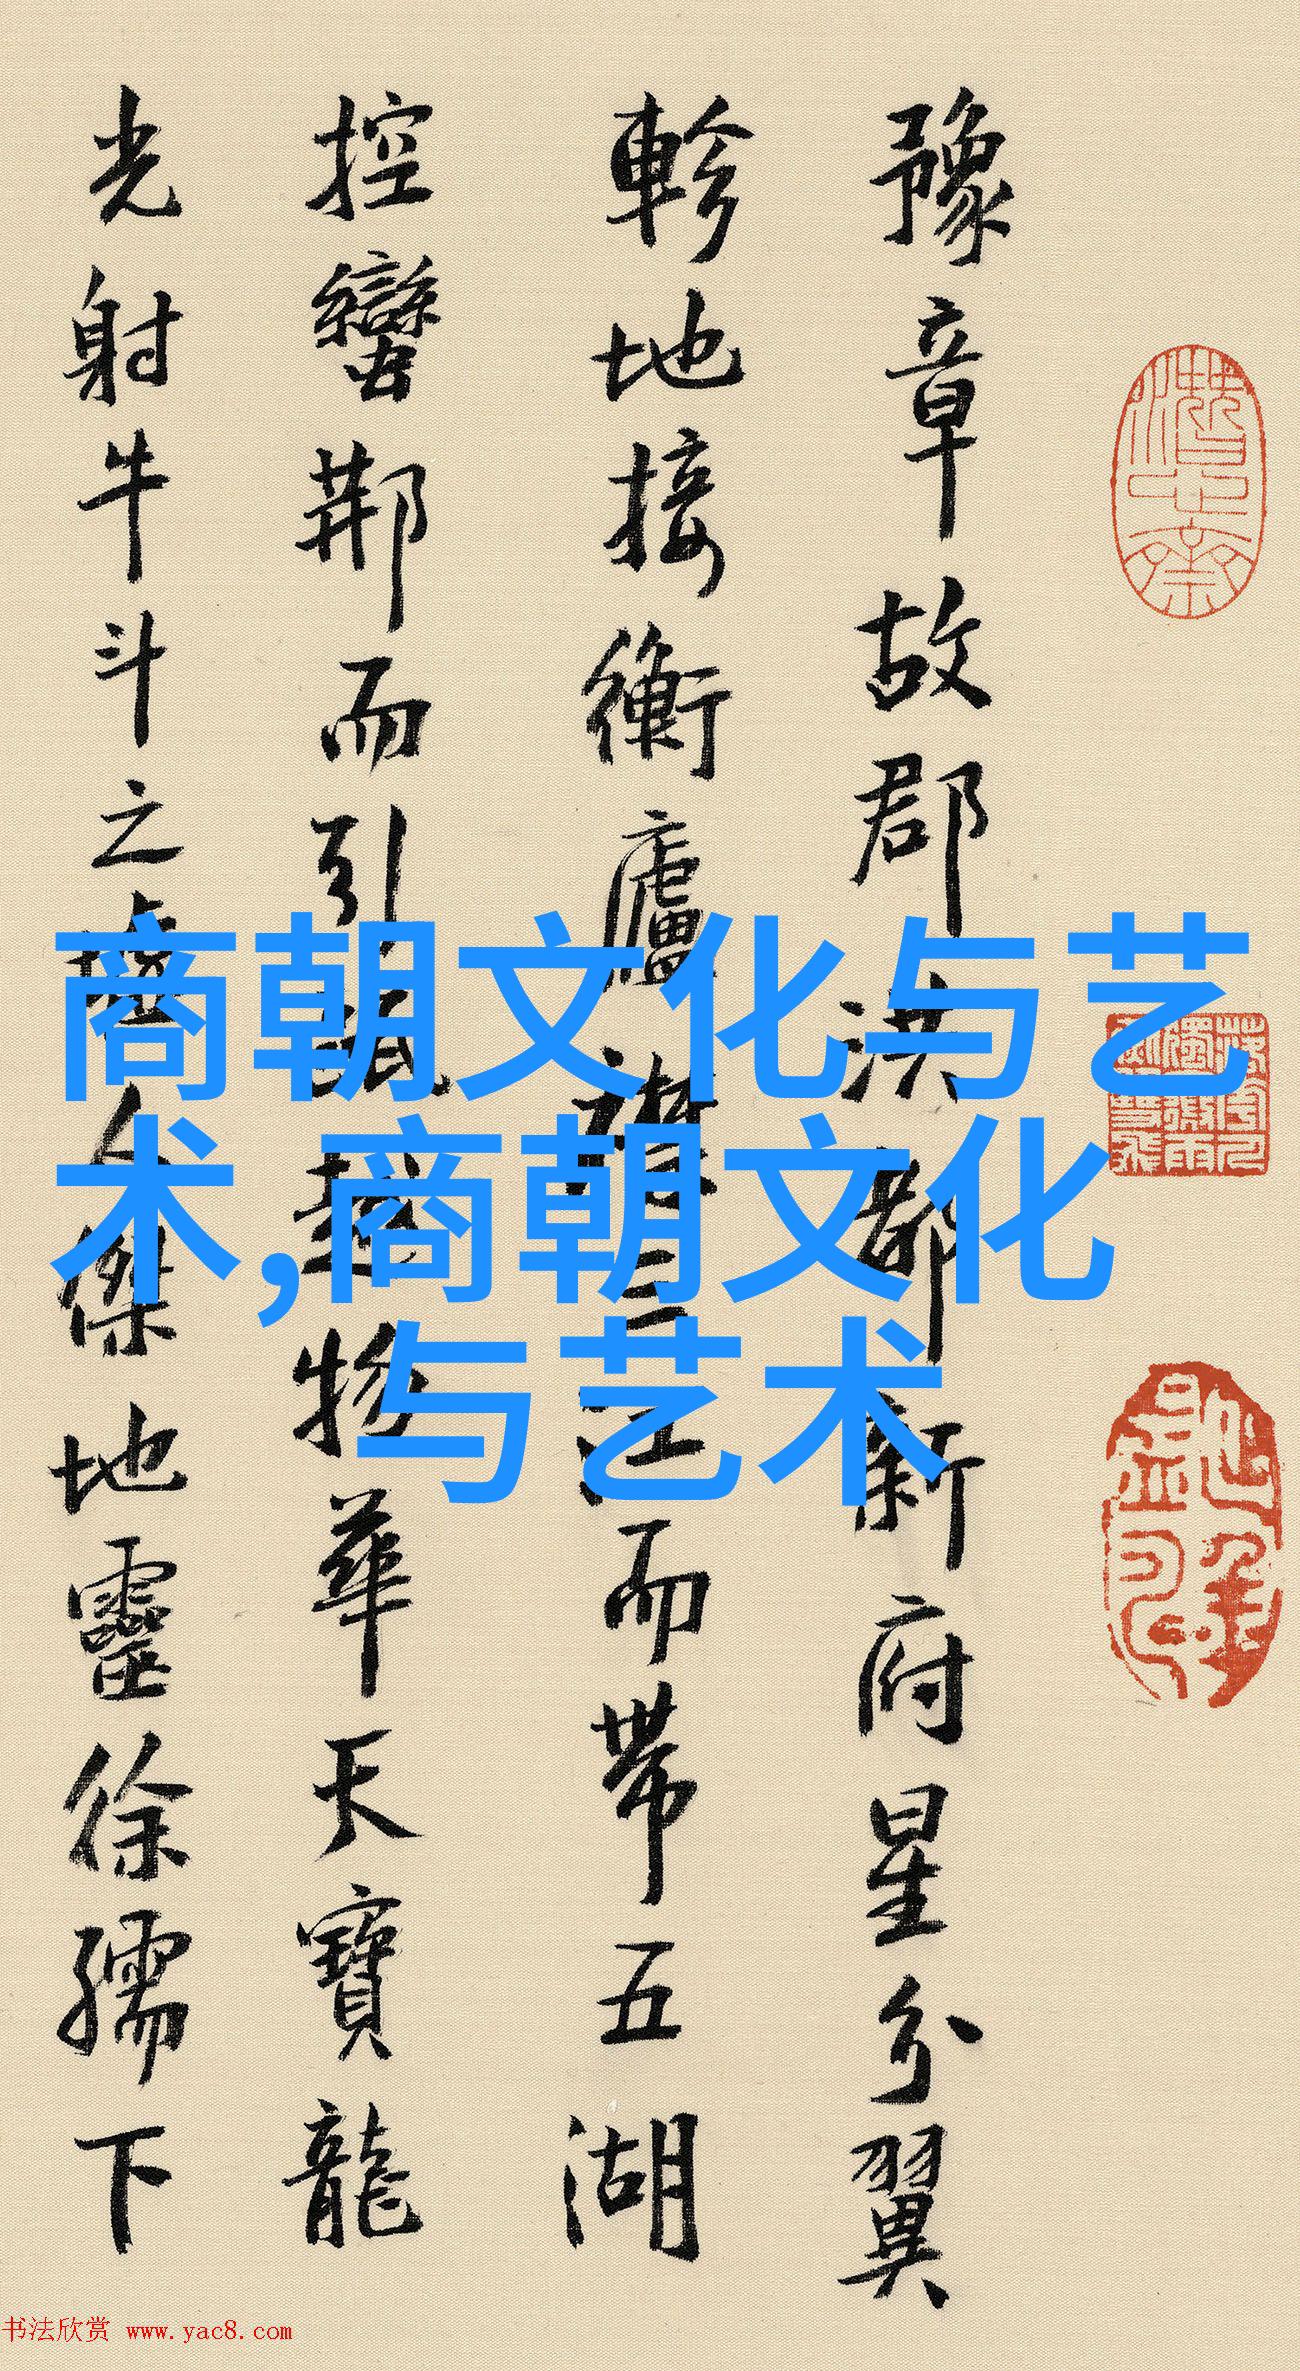 豫章故郡洪都新府星分翼
軫地接衡廬襟三江而帶五湖
控蠻荆而引甌越物華天寶龍
光射牛斗之墟人傑地靈徐孺下
商朝文化与艺
术,商朝文化
与艺术
书法欣赏 www.yac8.com